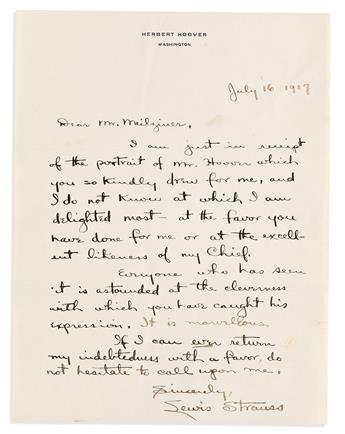 HERBERT HOOVER
WASHINGTON
July 16 1917
Dear Mr. Meilziner,
I am just in receipt
of the portrait of Mr. Hoover which
you so kindly drew for me, and
I do not know at which I am
delighted most - at the favor you
have done for me or at the excell-
ent likeness of my Chief.
Everyone who has seen
it is astounded at the cleverness
with which you have caught his
expression. It is marvellous.
If I can ever return
my indebtedness with a favor, do
not hesitate to call upon me.
Sincerely,
Lewis Strauss